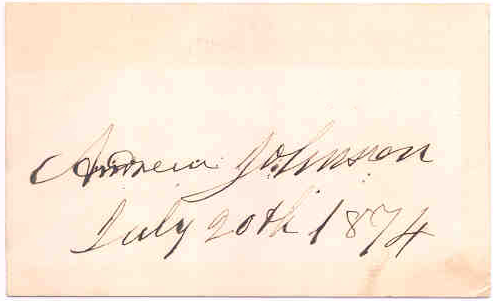 Andrew Johnson
July 20th 1874